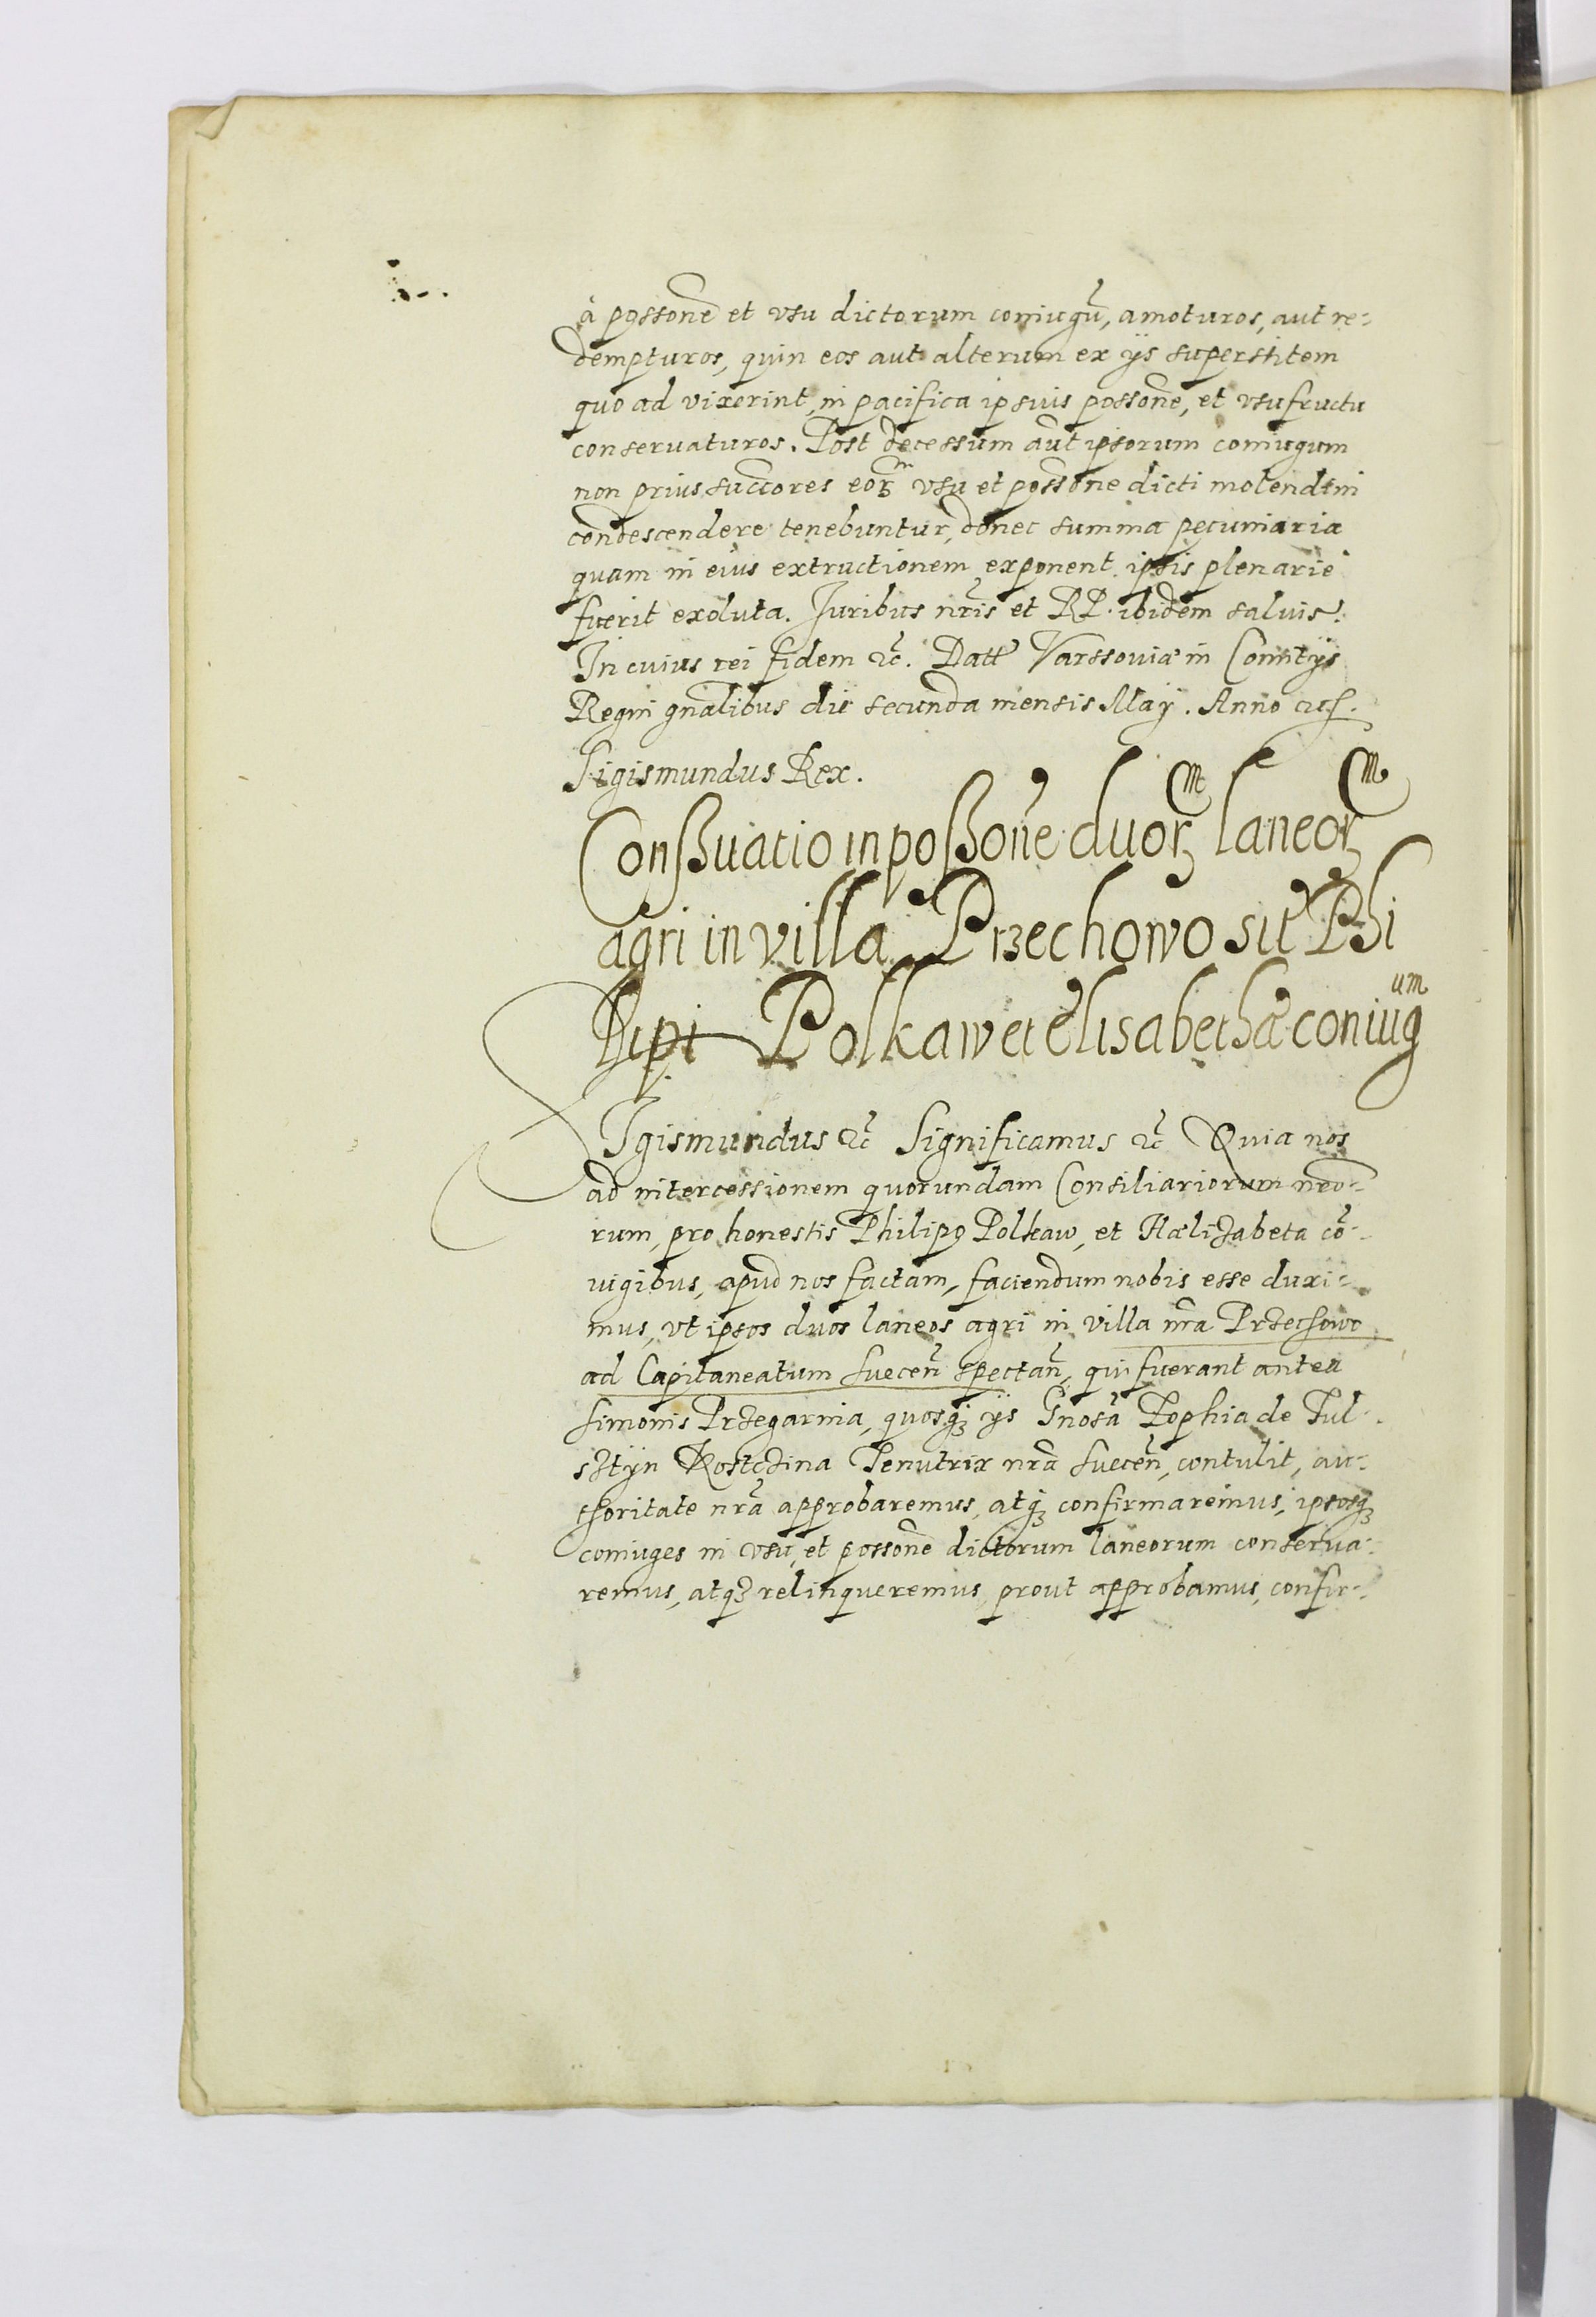 à possone et vsu dictorum coniugū, amoturos, aut re-
dempturos, quin eos aut alterum ex ijs superstitem
quo ad vixerint, in pacifica ipsius possone, et vsufructu
conseruaturos. Post decessum aut ipsorum coniugum
non prius succores eorm vsu et possone dicti molendini
condescendere tenebuntur, donec summa pecuniaria
quam in eius extructionem exponent ipsis plenarie
fuerit exoluta. Iuribus nris et RP. ibidem saluis.
In cuius rei fidem &c. Datt Varssouiæ in Comitijs
Regni gnalibus die secunda mensis Maij. Anno
Sigismundus Rex.
Consuatio in possone duorm laneorm
agri in villa Przechowo sit Phi
lipi Polkaw et Elisabethæ coniugum
Igismundus &c Significamus &c Quia nos
ad intercessionem quorundam Consiliariorum nro-
rum, pro honestis Philipo Polkaw, et Hælizabeta cō-
iugibus, apud nos factam, faciendum nobis esse duxi-
mus, vt ipsos duos laneos agri in villa nra Przechowo
ad Capitaneatum suecen spectan, qui fuerant antea
simonis Przegarnia, quosq3 ijs Gnosa Zophia de Ful-
sztyn Kostczina Tenutrix nra suecen, contulit, au-
thoritate nra approbaremus, atq3 confirmaremus, ipsosq3
coniuges in vsu, et possone dictorum laneorum conserua-
remus, atq3 relinqueremus, prout approbamus, confir-